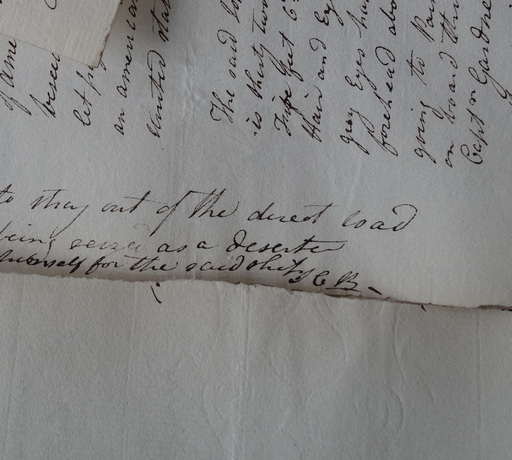 of ame
besee
let p
an american
United stat
The said
is thirty two
Five feet 6
Hair and Ey
grey Eyes ha
forehead abo
going to Pa
on board the
Capt n Gardne
to stray out of the direct road
being seized as a deserter
himself for the said ship J C B -